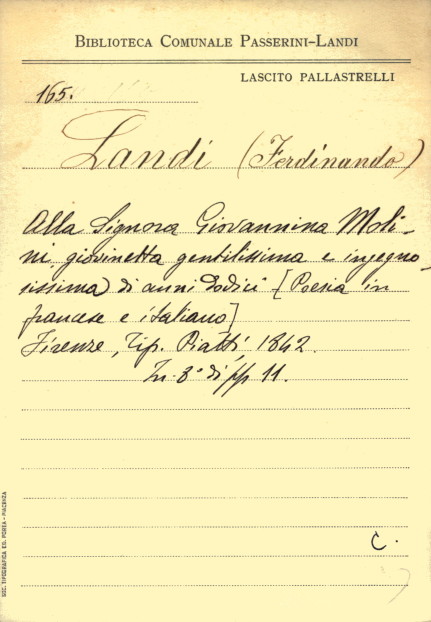 BIBLIOTECA COMUNALE PASSERINI-LANDI
LASCITO PALLASTRELLI
165.
Landi (Ferdinando)
Alla Signora Giovannina Moli-
ni, giovinetta gentilissima e ingegno
sissima di anni dodici [Poesia in
francese e italiano]
Firenze, Tip. Piatti, 1842.
In 8° di pp 11.
C.
SOC. TIPOGRAFICA ED. PORTA - PIACENZA